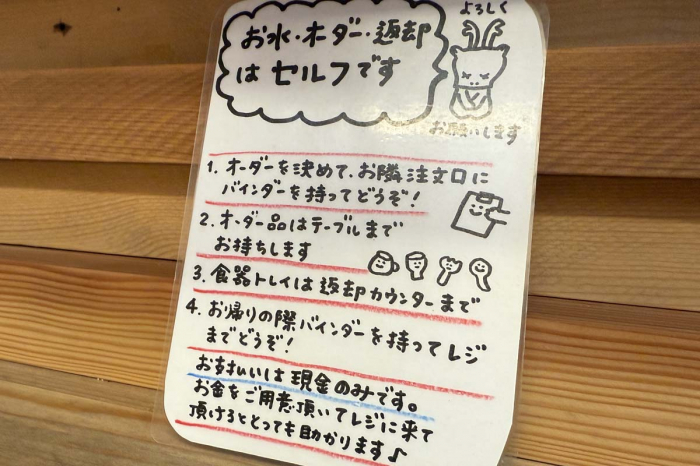 お水・オーダー・返却
は セルフです
よろしく
お願いします
1. オーダーを決めて、お隣注文口に
バインダーを持ってどうぞ!
2. オーダー品はテーブルまで
お持ちします
3. 食器トレイは返却カウンターまで
4. お帰りの際バインダーを持ってレジ
までどうぞ!
お支払いは現金のみです。
お金をご用意頂いてレジに来て
頂けるととっても助かります♪